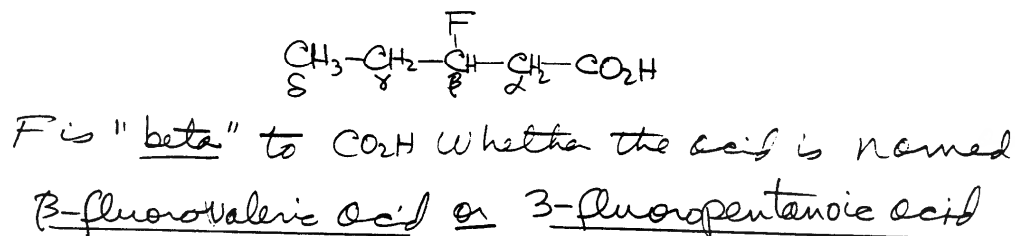 F
CH₃-CH₂-CH-CH₂-CO₂H
δ γ β α
F is "beta" to CO₂H Whether the acid is named
β-fluorovaleric acid or 3-fluoropentanoic acid